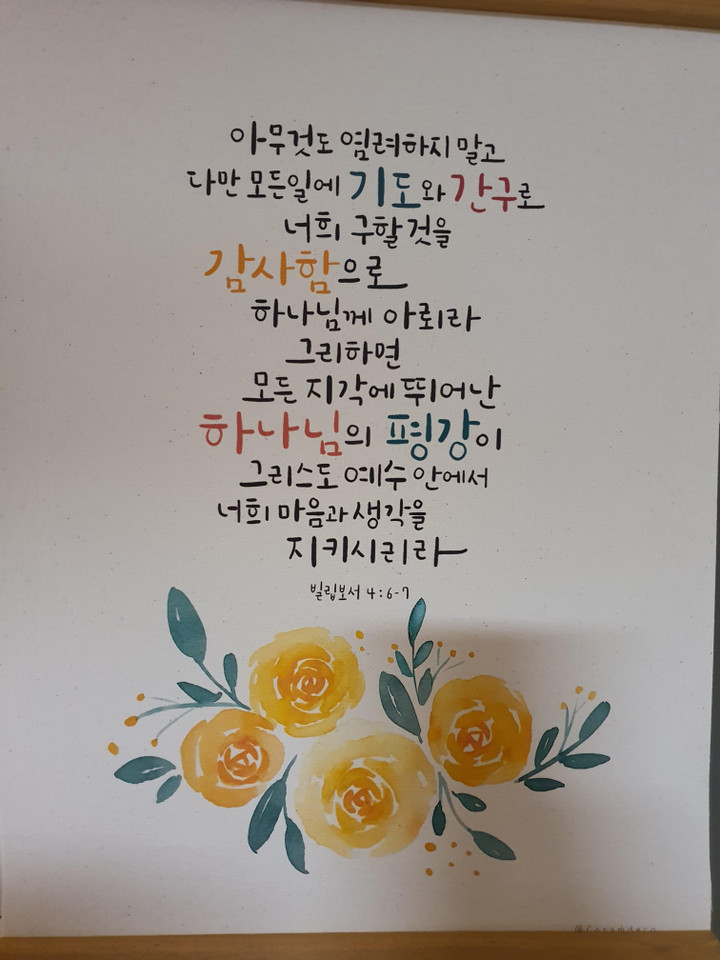 아무것도 염려하지 말고
다만 모든일에 기도와 간구로
너희 구할것을
감사함으로
하나님께 아뢰라
그리하면
모든 지각에 뛰어난
하나님의 평강이
그리스도 예수 안에서
너희 마음과 생각을
지키시리라
빌립보서 4:6-7